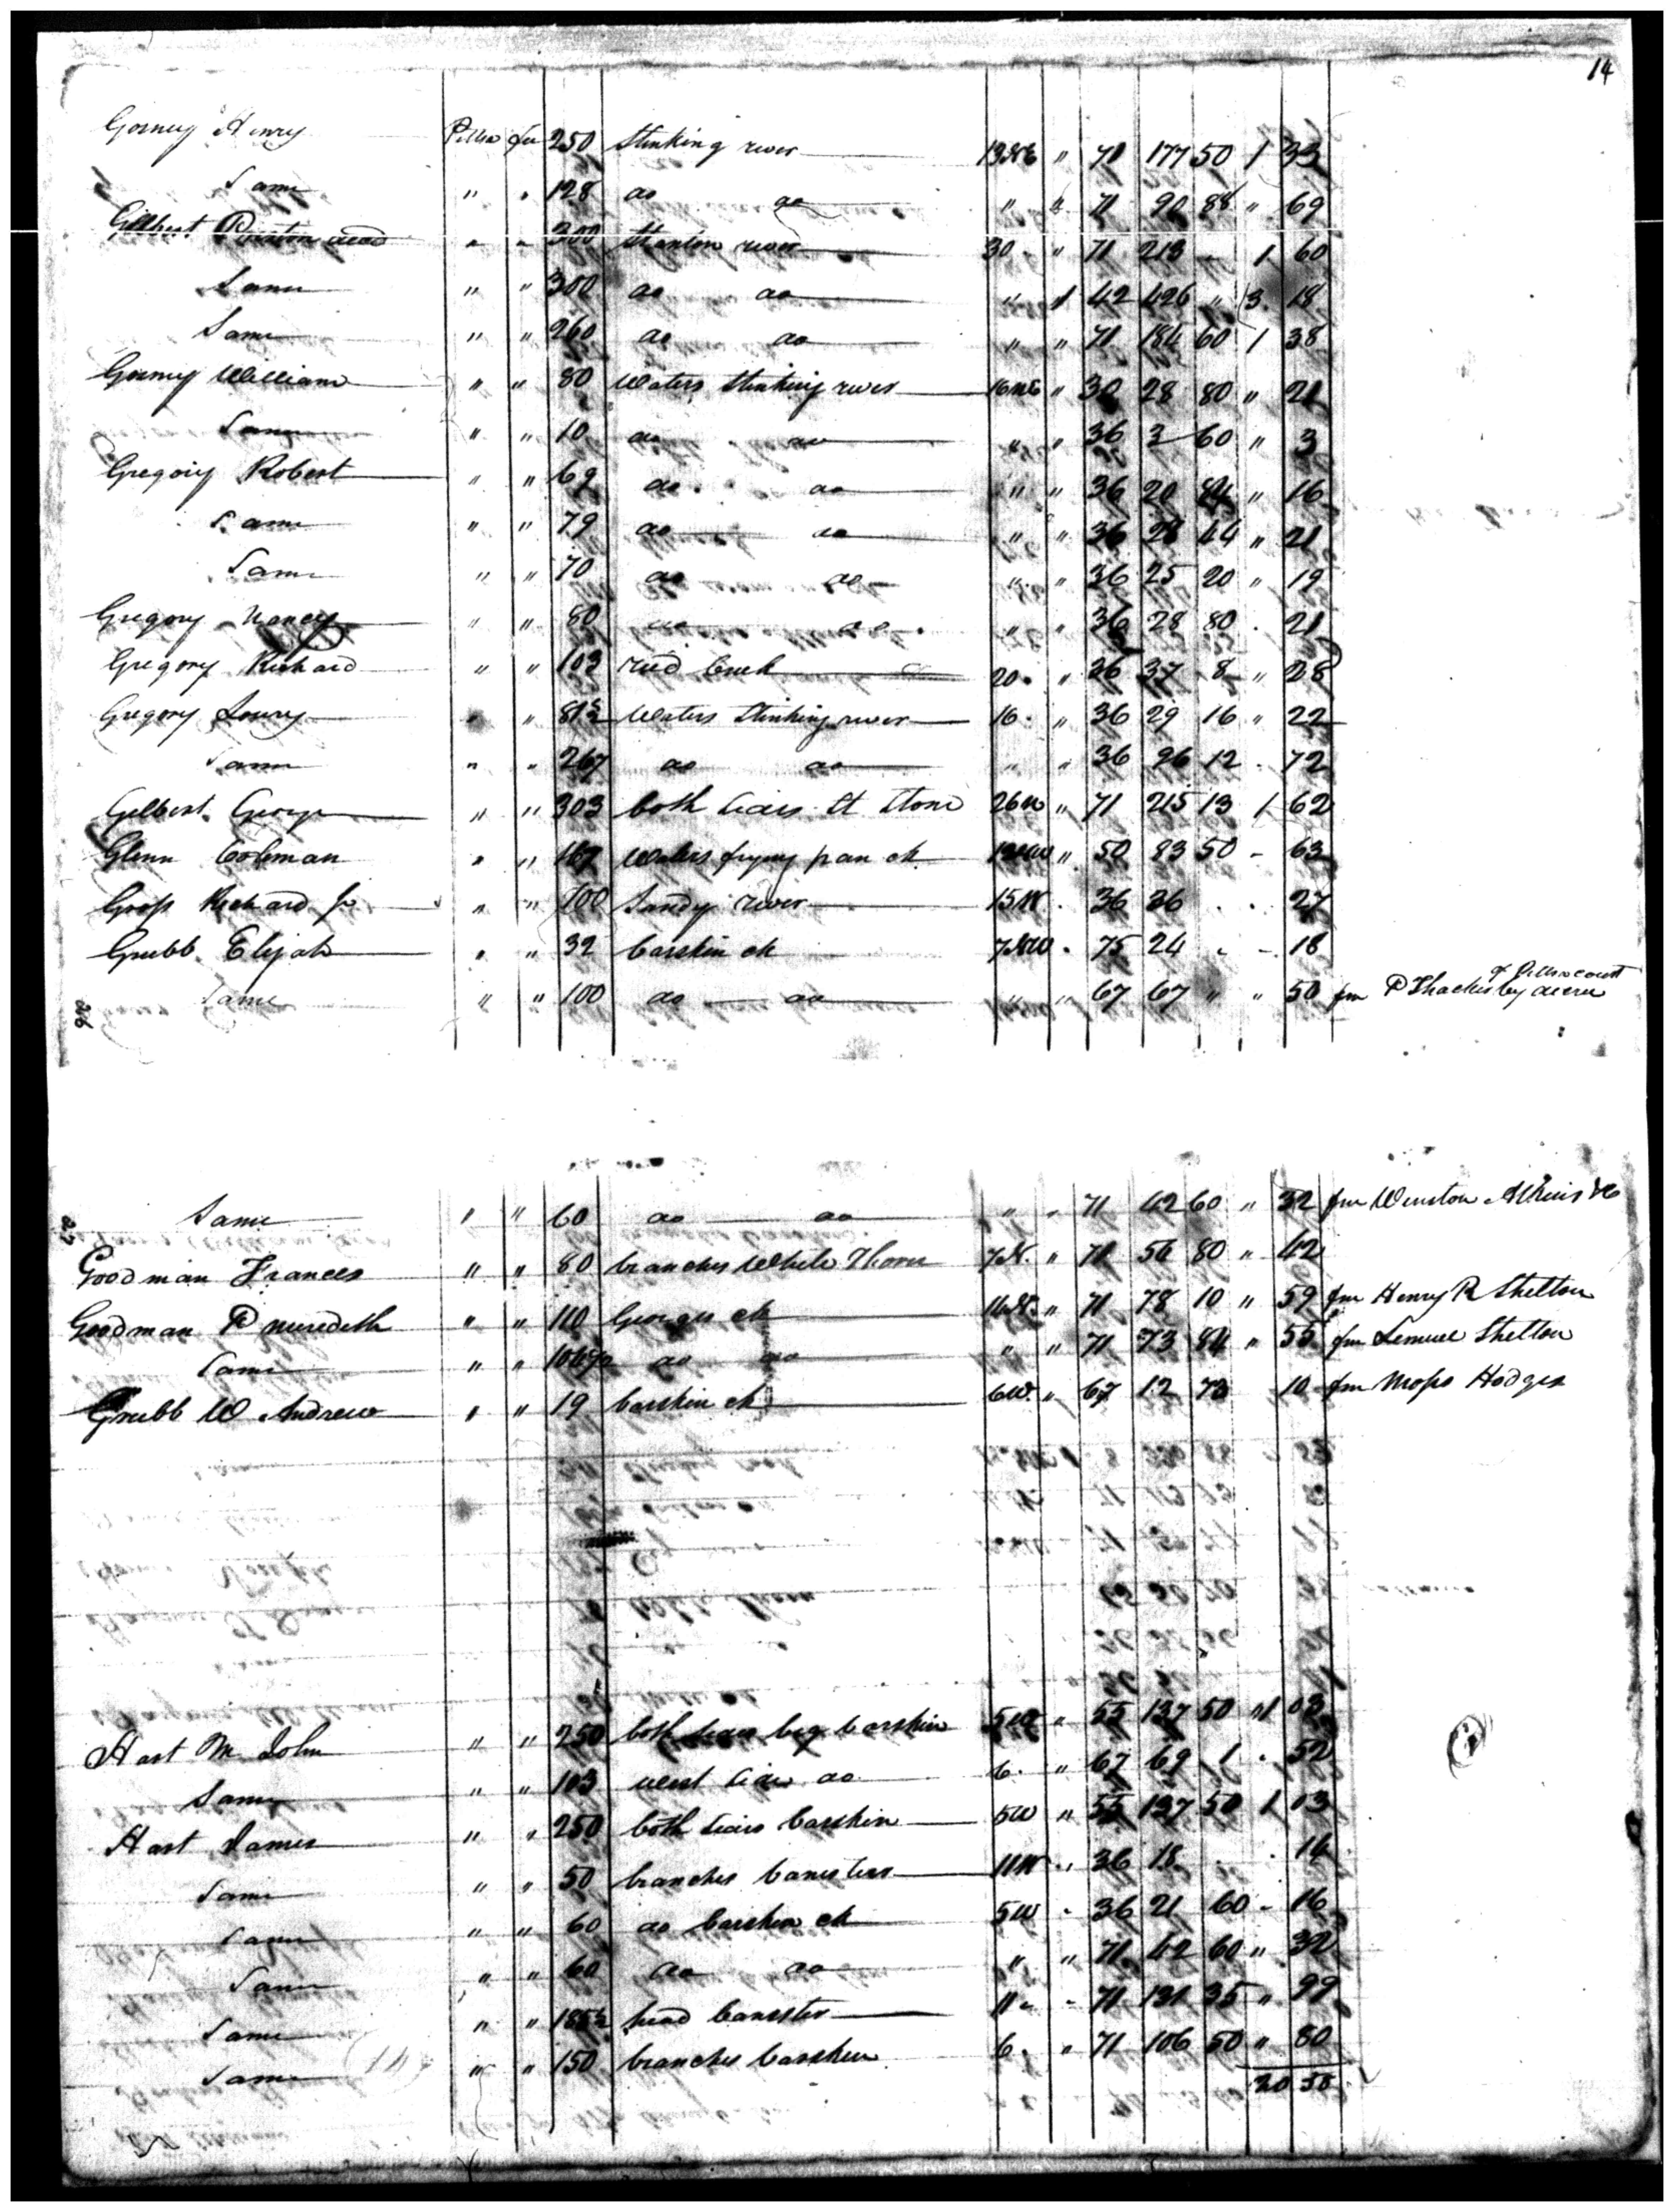 14
Gorney Henry Pittsa fee 250 Stinking river 19 NE " 71 177 50 1 33
Same " " 128 do do " " 71 90 88 " 69
Gilbert Preston decd " " 300 Stanton river 30 " " 71 213 - 1 60
Same " " 300 do do " 1 42 426 " 3 18
Same " " 260 do do " " 71 184 60 1 38
Gorney William " " 80 Waters Stinking river 16 NE " 30 28 80 " 21
Same " " 10 do do " " 36 3 60 " 3
Gregory Robert " " 69 do do " " 36 20 84 " 16
Same " " 79 do do " " 36 28 44 " 21
Same " " 70 do do " " 36 25 20 " 19
Gregory Nancy " " 80 do do " " 36 28 80 . 21
Gregory Richard " " 103 reed Creek 20 " " 36 37 8 " 28
Gregory Lowry " " 81 Waters Stinking river 16 . " 36 29 16 " 22
Same " " 267 do do " " 36 96 12 . 72
Gilbert George " " 303 both sides St Stone 26 N " 71 215 13 1 62
Glenn Coleman " " 167 Waters frying pan ck " 50 83 50 - 63
Gross Richard Jr " " 100 Sandy river 15 W . 36 36 . . 27
Grubb Elijah " " 32 barskin ck 7 NW . 75 24 . - 18
Same " " 100 do do " " 67 67 " " 50 fm P Thacker by decree of Pittsa court
26
27
Same " " 60 do do " " 71 42 60 " 32 fm Winston Atkins &c
Goodman Frances " " 80 branches White Thorn 7 N. " 71 56 80 " 42
Goodman P meredith " " 110 Georges ck " 71 78 10 " 59 fm Henry R Shelton
Same " " do do " " 71 73 84 " 55 fm Lemuel Shelton
Grubb W Andrew " " 19 barskin ck 6 W. " 67 12 73 10 fm Moses Hodges
Hart M John " " 250 both sides big barskin 5 W " 55 137 50 " 1 03
Same " " 103 west side do 6 . " 67 69 1 . 52
Hart James " " 250 both sides barskin 5 W " 55 137 50 1 03
Same " " 50 branches banisters 11 W " 36 18 . . 14
Same " " 60 do barskin ck 5 W - 36 21 60 - 16
Same " " 60 do do " " 71 42 60 " 32
Same " " 185 head banister 11 " - 71 131 35 " 99
Same " " 150 branches barskin 6 . " 71 106 50 " 80
20 58